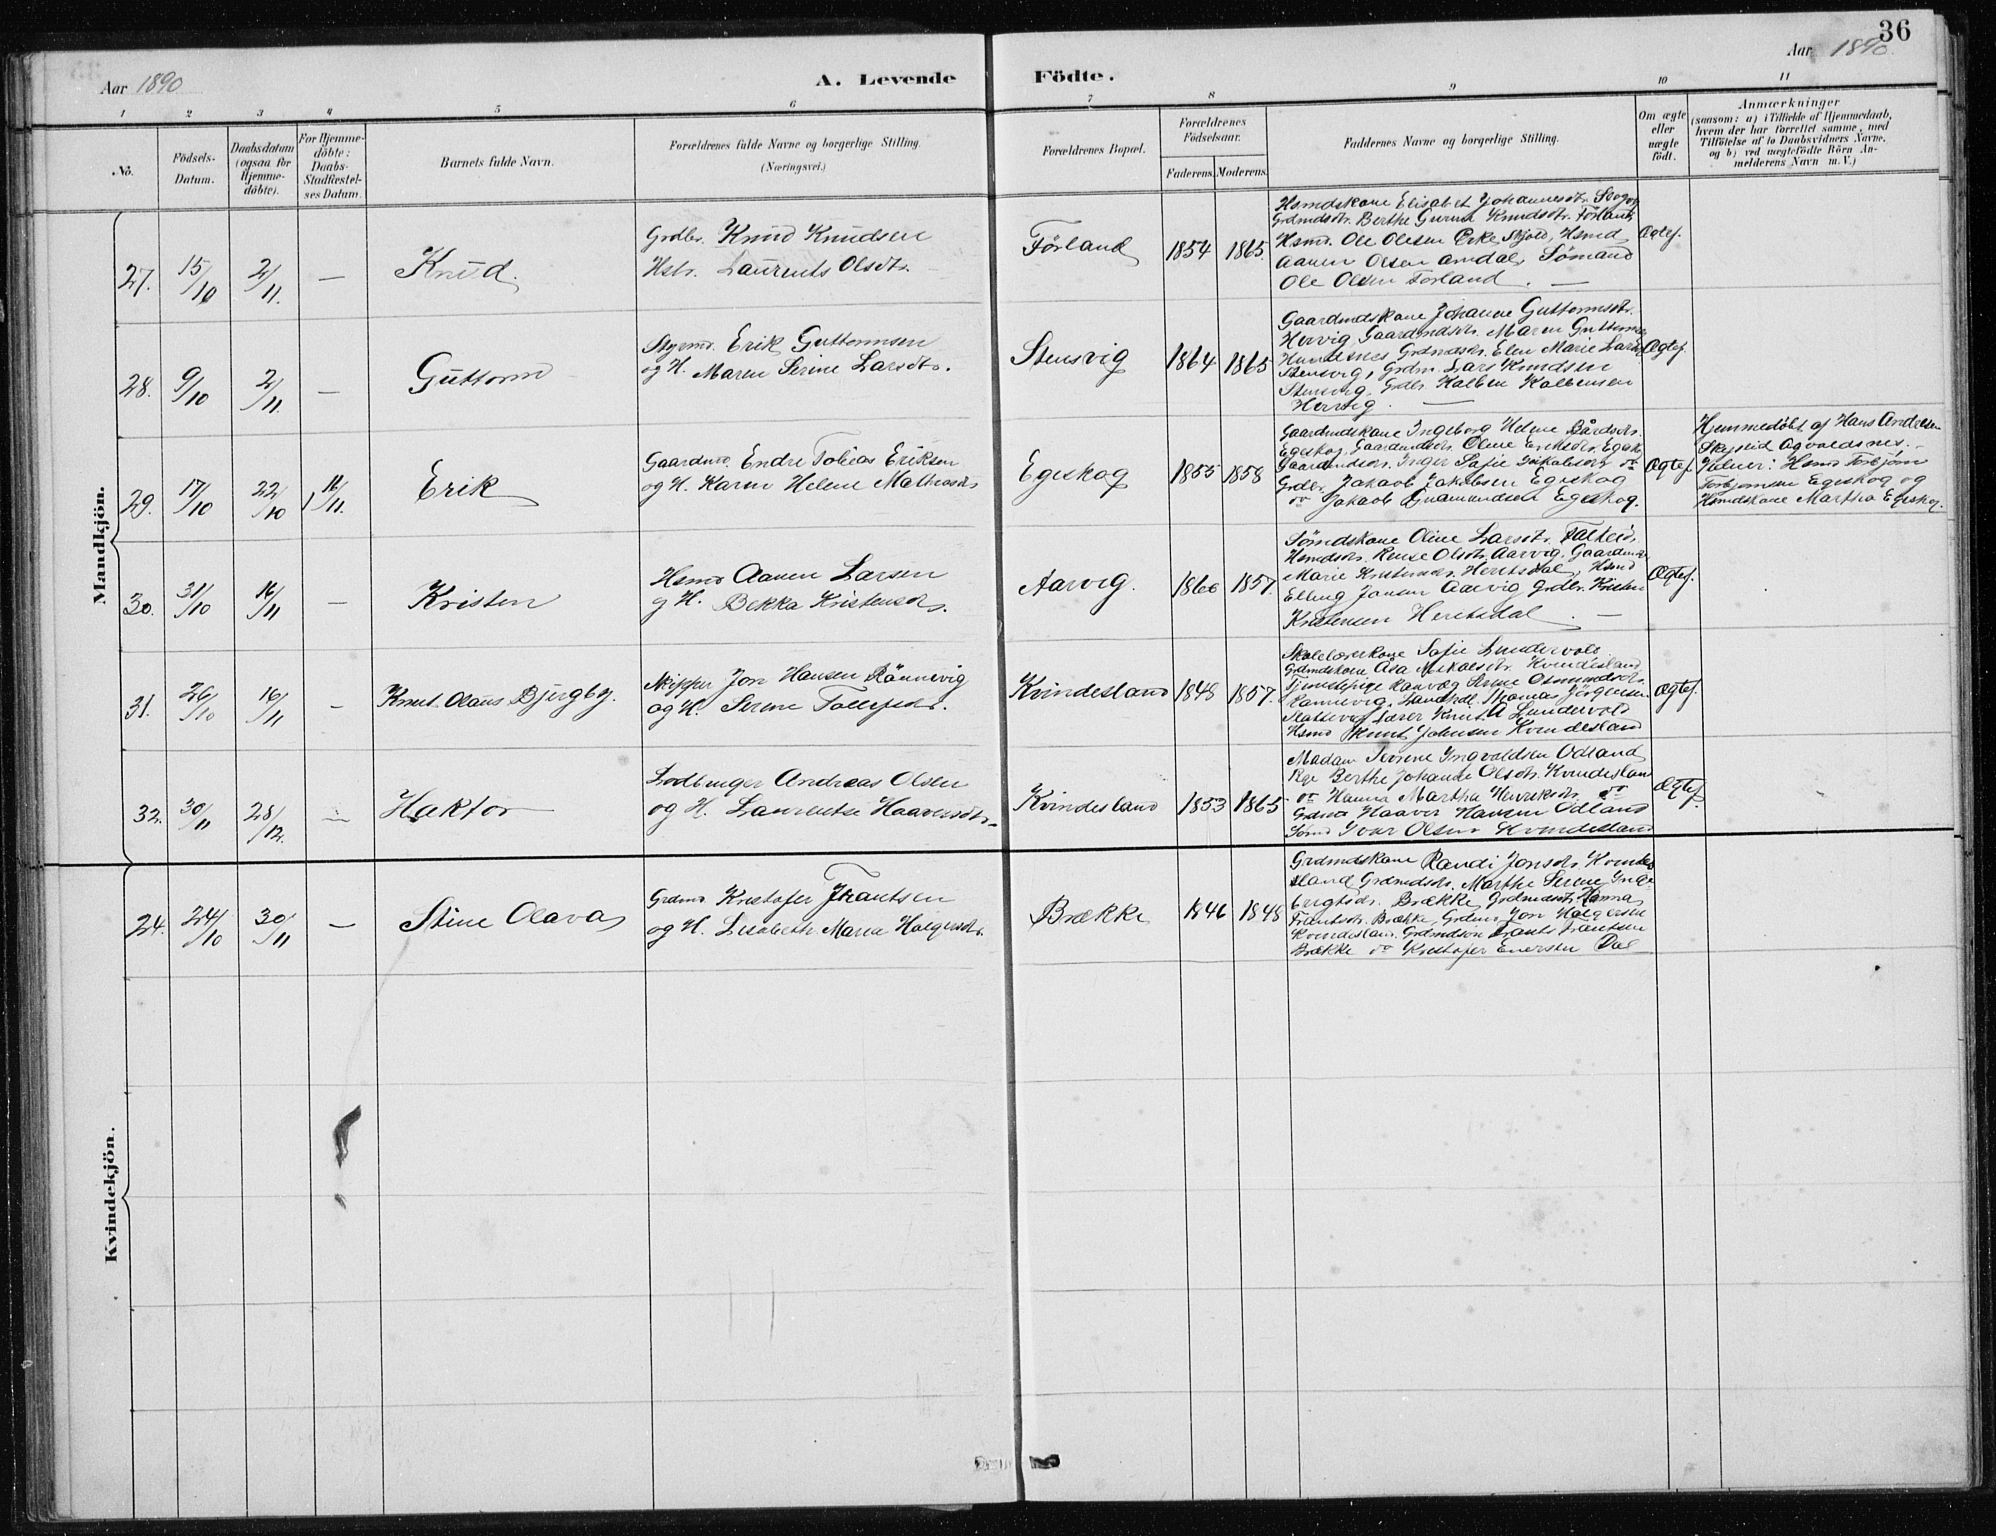 36
Aar 1890
A. Levende Födte.
Aar 1890.
1 2 3 4 5 6 7 8 9 10 11
No.
Födsels-Datum.
Daabsdatum (ogsaa for Hjemme-döbte).
For Hjemme-döbte: Daabs-Stadfæstel-ses Datum.
Barnets fulde Navn.
Forældrenes fulde Navne og borgerlige Stilling.
(Næringsvei.)
Forældrenes Bopæl.
Forældrenes Födselsaar.
Faderens. Moderens.
Faddernes Navne og borgerlige Stilling.
Om ægte eller uægte födt.
Anmærkninger
(saasom: a) i Tilfælde af Hjemmedaab,
hvem der har forrettet samme, med
Tilföielse af to Daabsvidners Navne,
og b) ved uægtefödte Börn An-
melderens Navn m. V.)
Mandkjön.
27. 15/10 2/11. — Knud.
Grdbr. Knud Knudsen
Hstr. Laurents Olsdtr.
Førland 1854 1865.
Hsmdskone Elisabet Johannesdtr.
Grdmdsdtr. Berthe Gurine Knudsdtr. Førland
Hsmd. Ole Olsen Eike Skjold, Hsmd
Aanen Olsen Amdal, Sømand
Ole Olsen Førland. —
Ægtef.
28. 9/10 2/11. — Guttorm
Styrmd. Erik Guttormsen
og H. Maren Serine Larsdtr.
Stensvig 1864 1865
Gaardmdskone Johanne Guttormsdtr.
Hervig, Gaardmdsdtr. Maren Guttorms
Grdmdsdtr. Elen Marie Larsd
Stensvig, Grdm. Lars Knudsen
Stensvig, Grdbr. Kolben Kolbensen
Hervig. —
Ægtef.
29. 17/10 22/10 12/11. Erik
Gaardmd. Endre Tobias Eriksen
og H. Karen Helene Mathiasdtr
Egeskog 1855 1858
Gaardmdskone Ingeborg Helene Bårdsdtr.
Egeskog, Gaardmdsdtr. Oline Eriksdtr. Egesk.
Gaardmdsdtr. Inger Sofie Jakobsdtr do
Grdbr. Jakob Jakobsen Egeskog
do Jakob Gudmundsen Egeskog.
Ægtef.
Hjemmedøbt af Hans Andreasen
Skejseid Agvaldsnes. —
Vidner: Hsmd Torbjørn
Torbjørnsen Egeskog og
Hsmdskone Martha Egeskog.
30. 31/10 16/11 — Kristen
Hsmd Aanen Larsen
g H. Bekka Kristensdtr.
Aarvig. 1860 1857.
Sømdskone Oline Larsdtr. Falkeid.
Hsmdsdtr. Olsdtr. Aarvig, Gaardmds
Marie Kristensdtr. Heritsdal, Hsmd
Elling Jansen Aarvig Grdbr. Kristen
Kristensen Heritsdal. —
Ægtef.
31. 26/10 16/11 — Knut Olaus Bjergby.
Skipper Jon Hansen Rönnevig
og H. Serine Tollefsdtr.
Kvindesland 1848 1857.
Skolelærerkone Sofie Lundervold
Grdmdskone Åsa Mikalsdtr. Kvindesland
Tjenestepige Ranveg Serine Osmundsdtr.
Rønnevig, Landhdl. Thomas Jørgensen
Slattevig, Lærer Knut A Lundervold
Hsmd Knut Johnsen Kvindesland
Ægtef.
32. 30/11 28/12. — Haktor
Lodbruger Andreas Olsen
og H. Laurentse Haaversdtr.
Kvindesland 1853 1865
Madam Serene Ingvaldsen Odland
Pige Berthe Johanne Olsdtr. Kvindeslan
do Hanna Martha Henriksdtr. do
Grdmd Haaver Hansen Odland
Sømd Ivar Olsen Kvindesland
Ægtef.
Kvindekjön.
24. 24/10 30/11 — Stine Olava
Grdmd Kristofer Frantsen
og H. Lisabeth Maria Holgersdtr.
Brække 1846 1848
Grdmdskone Randi Jonsdtr. Kvindes
land Grdmdsdtr. Marthe Serine Inge-
brigtsdr. Brække, Grdmdsdtr. Hanna
Frantsdtr. Brække, Grdmd Jon Holgersen
Kvindesland, Grdmdsøn Frants Frantsen
Brække do Kristofer Enersen Dal